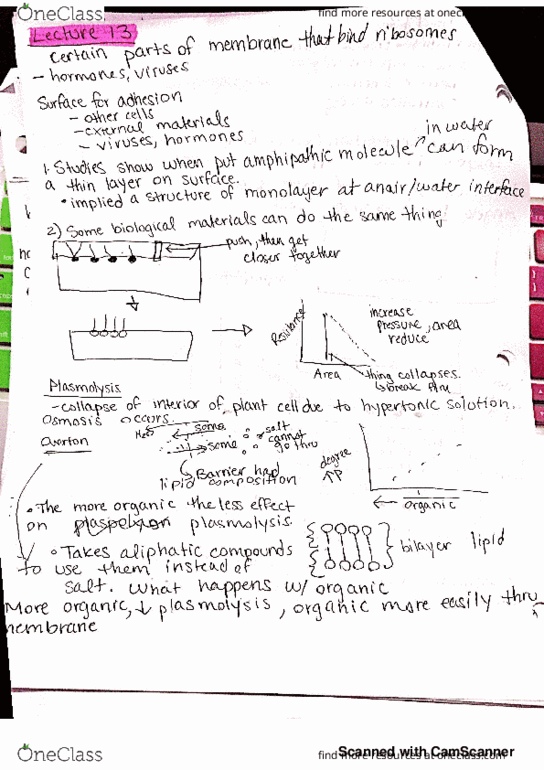 OneClass
find more resources at oneclass
Lecture 13
certain parts of membrane that bind ribosomes
- hormones, viruses
Surface for adhesion
- other cells
- external materials
- viruses, hormones
in water
1. Studies show when put amphipathic molecule can form
a thin layer on surface.
• implied a structure of monolayer at an air/water interface
2) Some biological materials can do the same thing
push, then get
closer together
Resistance
Area
increase
pressure, area
reduce
thing collapses.
↳ break film
Plasmolysis
- collapse of interior of plant cell due to hypertonic solution.
Osmosis occurs
Overton
H2O
some
some
salt
cannot
go thru
Barrier had
lipid composition
degree
↑P
← organic
• The more organic the less effect
on plasmolysis.
bilayer lipid
• Takes aliphatic compounds
to use them instead of
salt. What happens w/ organic
More organic, ↓ plasmolysis, organic more easily thru
membrane
OneClass
find more resources at oneclass.com
Scanned with CamScanner